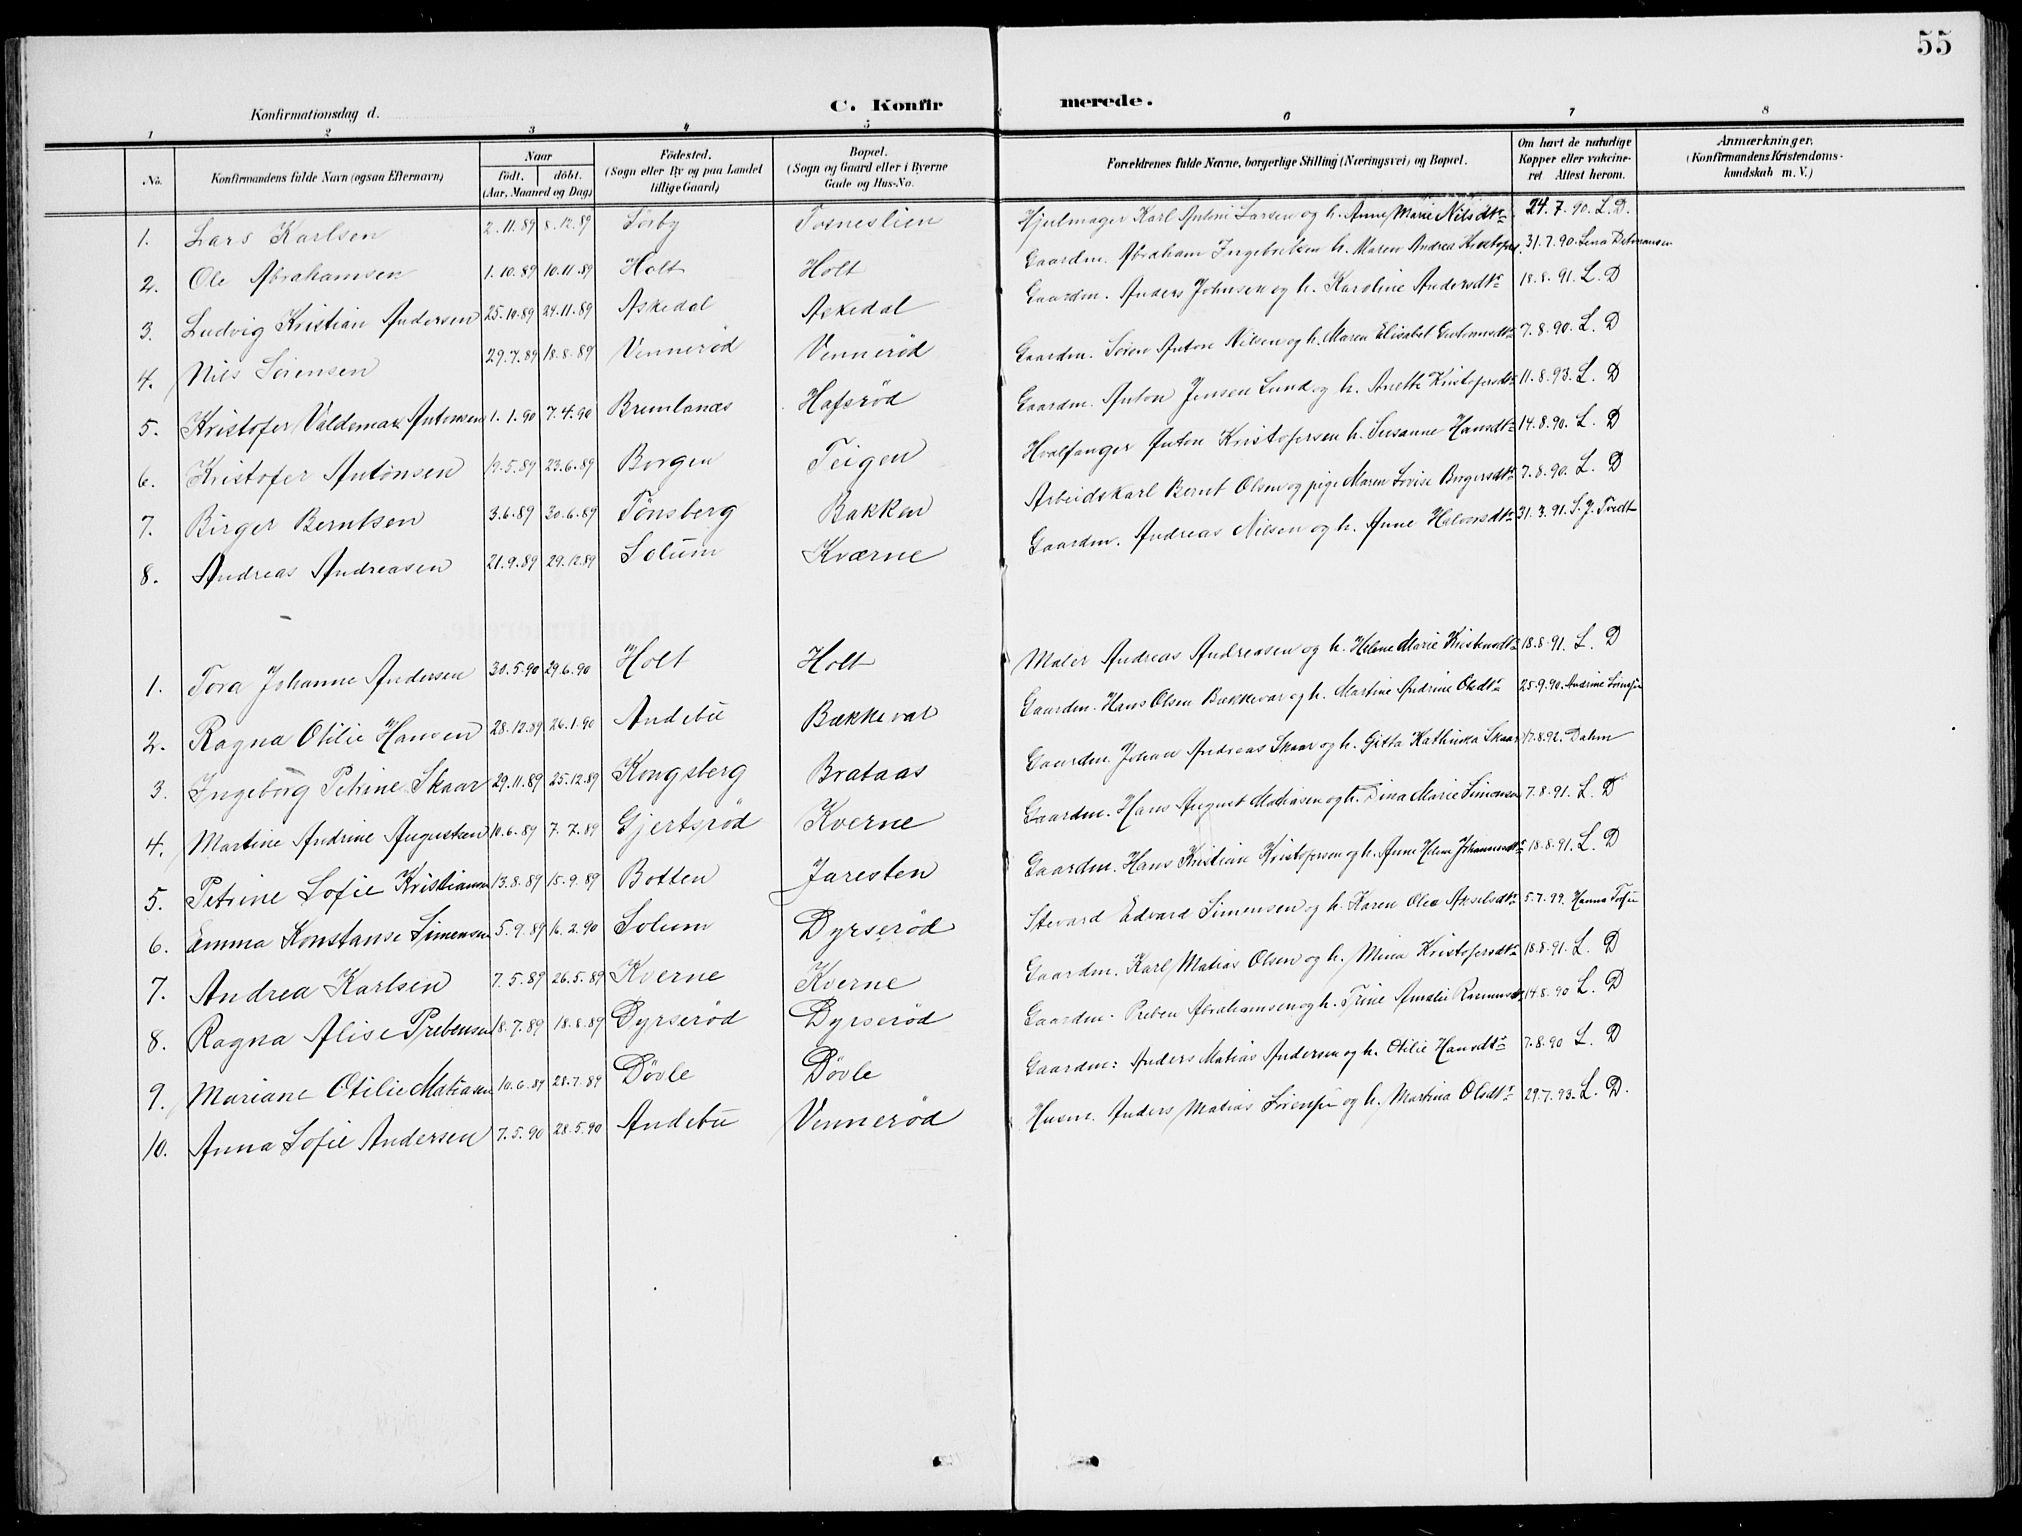 55
C. Konfirmerede.
Konfirmationsdag d.
1 2 3 4 5 6 7 8
No. Konfirmandens fulde Navn (ogsaa Efternavn) Naar født. døbt. (Aar, Maaned og Dag) Födested. (Sogn eller By og paa Landet tillige Gaard) Bopæl. (Sogn og Gaard eller i Byerne Gade og Hus-No. Forældrenes fulde Navne, borgerlige Stilling (Næringsvei) og Bopæl. Om havt de naturlige Kopper eller vakcineret Attest herom. Anmærkninger. (Konfirmandens Kristendomskundskab m. V.)
1. Lars Karlsen 2.11.89 8.12.89 Sörby Tosneslien Hjulmager Karl Antini Larsen og h. Anne Marie Nilsdtr 24.7.90. L. D.
2. Ole Abrahamsen 1.10.89 10.11.89 Holt Holt Gaardm. Abraham Ingebretsen h. Maren Andrea 31.7.90. Lena
3. Ludvig Kristian Andersen 25.10.89 24.11.89 Askedal Askedal Gaardm. Anders Johnsen og h. Karoline Andersdtr 18.8.91. L. D
4. Nils Sörensen 29.7.89 18.8.89 Vennerød Vennerød Gaardm. Sören Anton Nilsen og h. Maren Elisabet 7.8.90. L. D
5. Kristofer Valdemar Antonsen 1.1.90 7.4.90 Brunlanæs Hafsrød Gaardm. Anton Jensen Lund og h. Anette Kristofersdtr 11.8.93. L. D
6. Kristofer Antonsen 19.5.89 23.6.89 Borgen Teigen Hvalfanger Anton Kristofersen h. Susanne Hansdtr 14.8.90. L. D
7. Birger Berntsen 3.6.89 30.6.89 Tönsberg Bakken Arbeidskarl Bernt Olsen og pige Maren Lovise Birgersdtr 7.8.90. L. D
8. Andreas Andreasen 21.9.89 29.12.89 Solum Kværne Gaardm. Andreas Nilsen og h. Anne Halvorsdtr 31.3.91. S. J. Tvedt
1. Tora Johanne Andersen 30.5.90 29.6.90 Holt Holt Maler Andreas Andreasen og h. Helene Marie Kristensdtr 18.8.91. L. D
2. Ragna Otilie Hansen 28.12.89 26.1.90 Andebu Bækkevar Gaardm. Hans Olsen Bækkevar og h. Martine Andrine Olsdtr 25.9.90. Andrine Sörensen
3. Ingeborg Petrine Skaar 29.11.89 25.12.89 Kongsberg Brataas Gaardm. Johan Andreas Skaar og h. Gitta Kathinka Skaar 17.8.92. Dahm
4. Martine Andrine Augustsen 10.6.89 7.7.89 Gjertsrød Kverne Gaardm. Hans August Matiasen og h. Dina Marie Simonsen 7.8.91. L. D
5. Petrine Sofie Kristiansen 13.8.89 15.9.89 Botten Jaresten Gaardm. Hans Kristian Kristofersen og h. Anne Helene Johannesdtr 18.8.91. L. D
6. Emma Konstanse Simensen 5.9.89 16.2.90 Solum Dyrserød Stevard Edvard Simensen og h. Karen Olea Akselsdtr 5.7.99. Hanna Tofie
7. Andrea Karlsen 7.5.89 26.5.89 Kverne Kverne Gaardm. Karl Matias Olsen og h. Mina Kristofersdtr 18.8.91. L. D
8. Ragna Alise Prebensen 18.7.89 18.8.89 Dyrserød Dyrserød Gaardm. Preben Abrahamsen og h. Trine Amalie Rasmusdtr 14.8.90 L. D
9. Mariane Otilie Matiasen 10.6.89 28.7.89 Døvle Døvle Gaardm: Anders Matias Andersen og h. Otilie Hansdtr 7.8.90 L. D
10. Anna Sofie Andersen 7.5.90 28.5.90 Andebu Vennerød Husm. Anders Matias Sörensen og h. Martina Olsdtr 29.7.93. L. D.